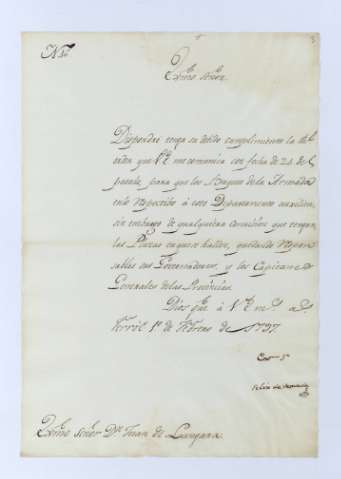 Exmo Señor
Dispondré tenga su debido cumplimiento la Rl
que V.E. me comunica con fecha de 24 del
para que los de la Armada
en lo respectivo à este Departamento
sin embargo de qualquiera comision que tengan
las Plazas en que se hallen, quedando Respon-
sables sus Governadores, y los Capitanes
Generales de las Provincias.
Dios gue à V.E. ms as
Ferròl 1º de Febrero de 1797.
Exmo Sr
Felix de
Exmo Señor Dn Juan de Langara.